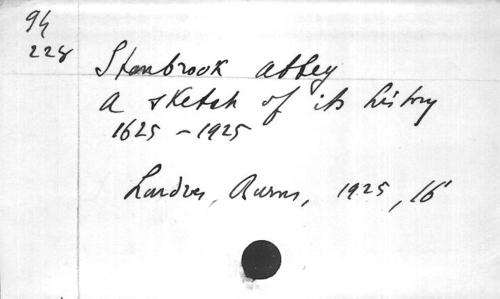 94
228
Stanbrook abbey
A sketch of its history
1625 - 1925
Londres, Burns, 1925, 16°